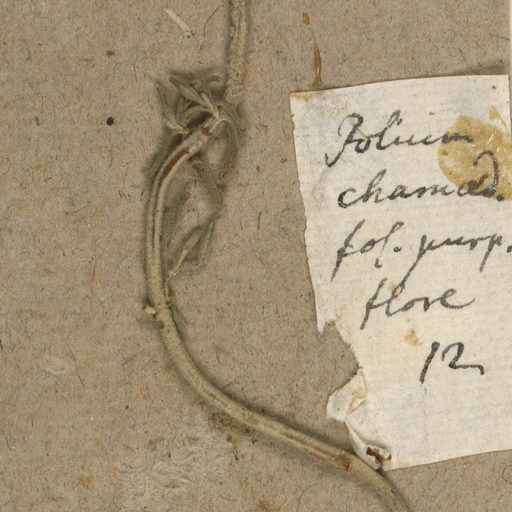 Polium
chamæd.
fol. purp.
flore
12